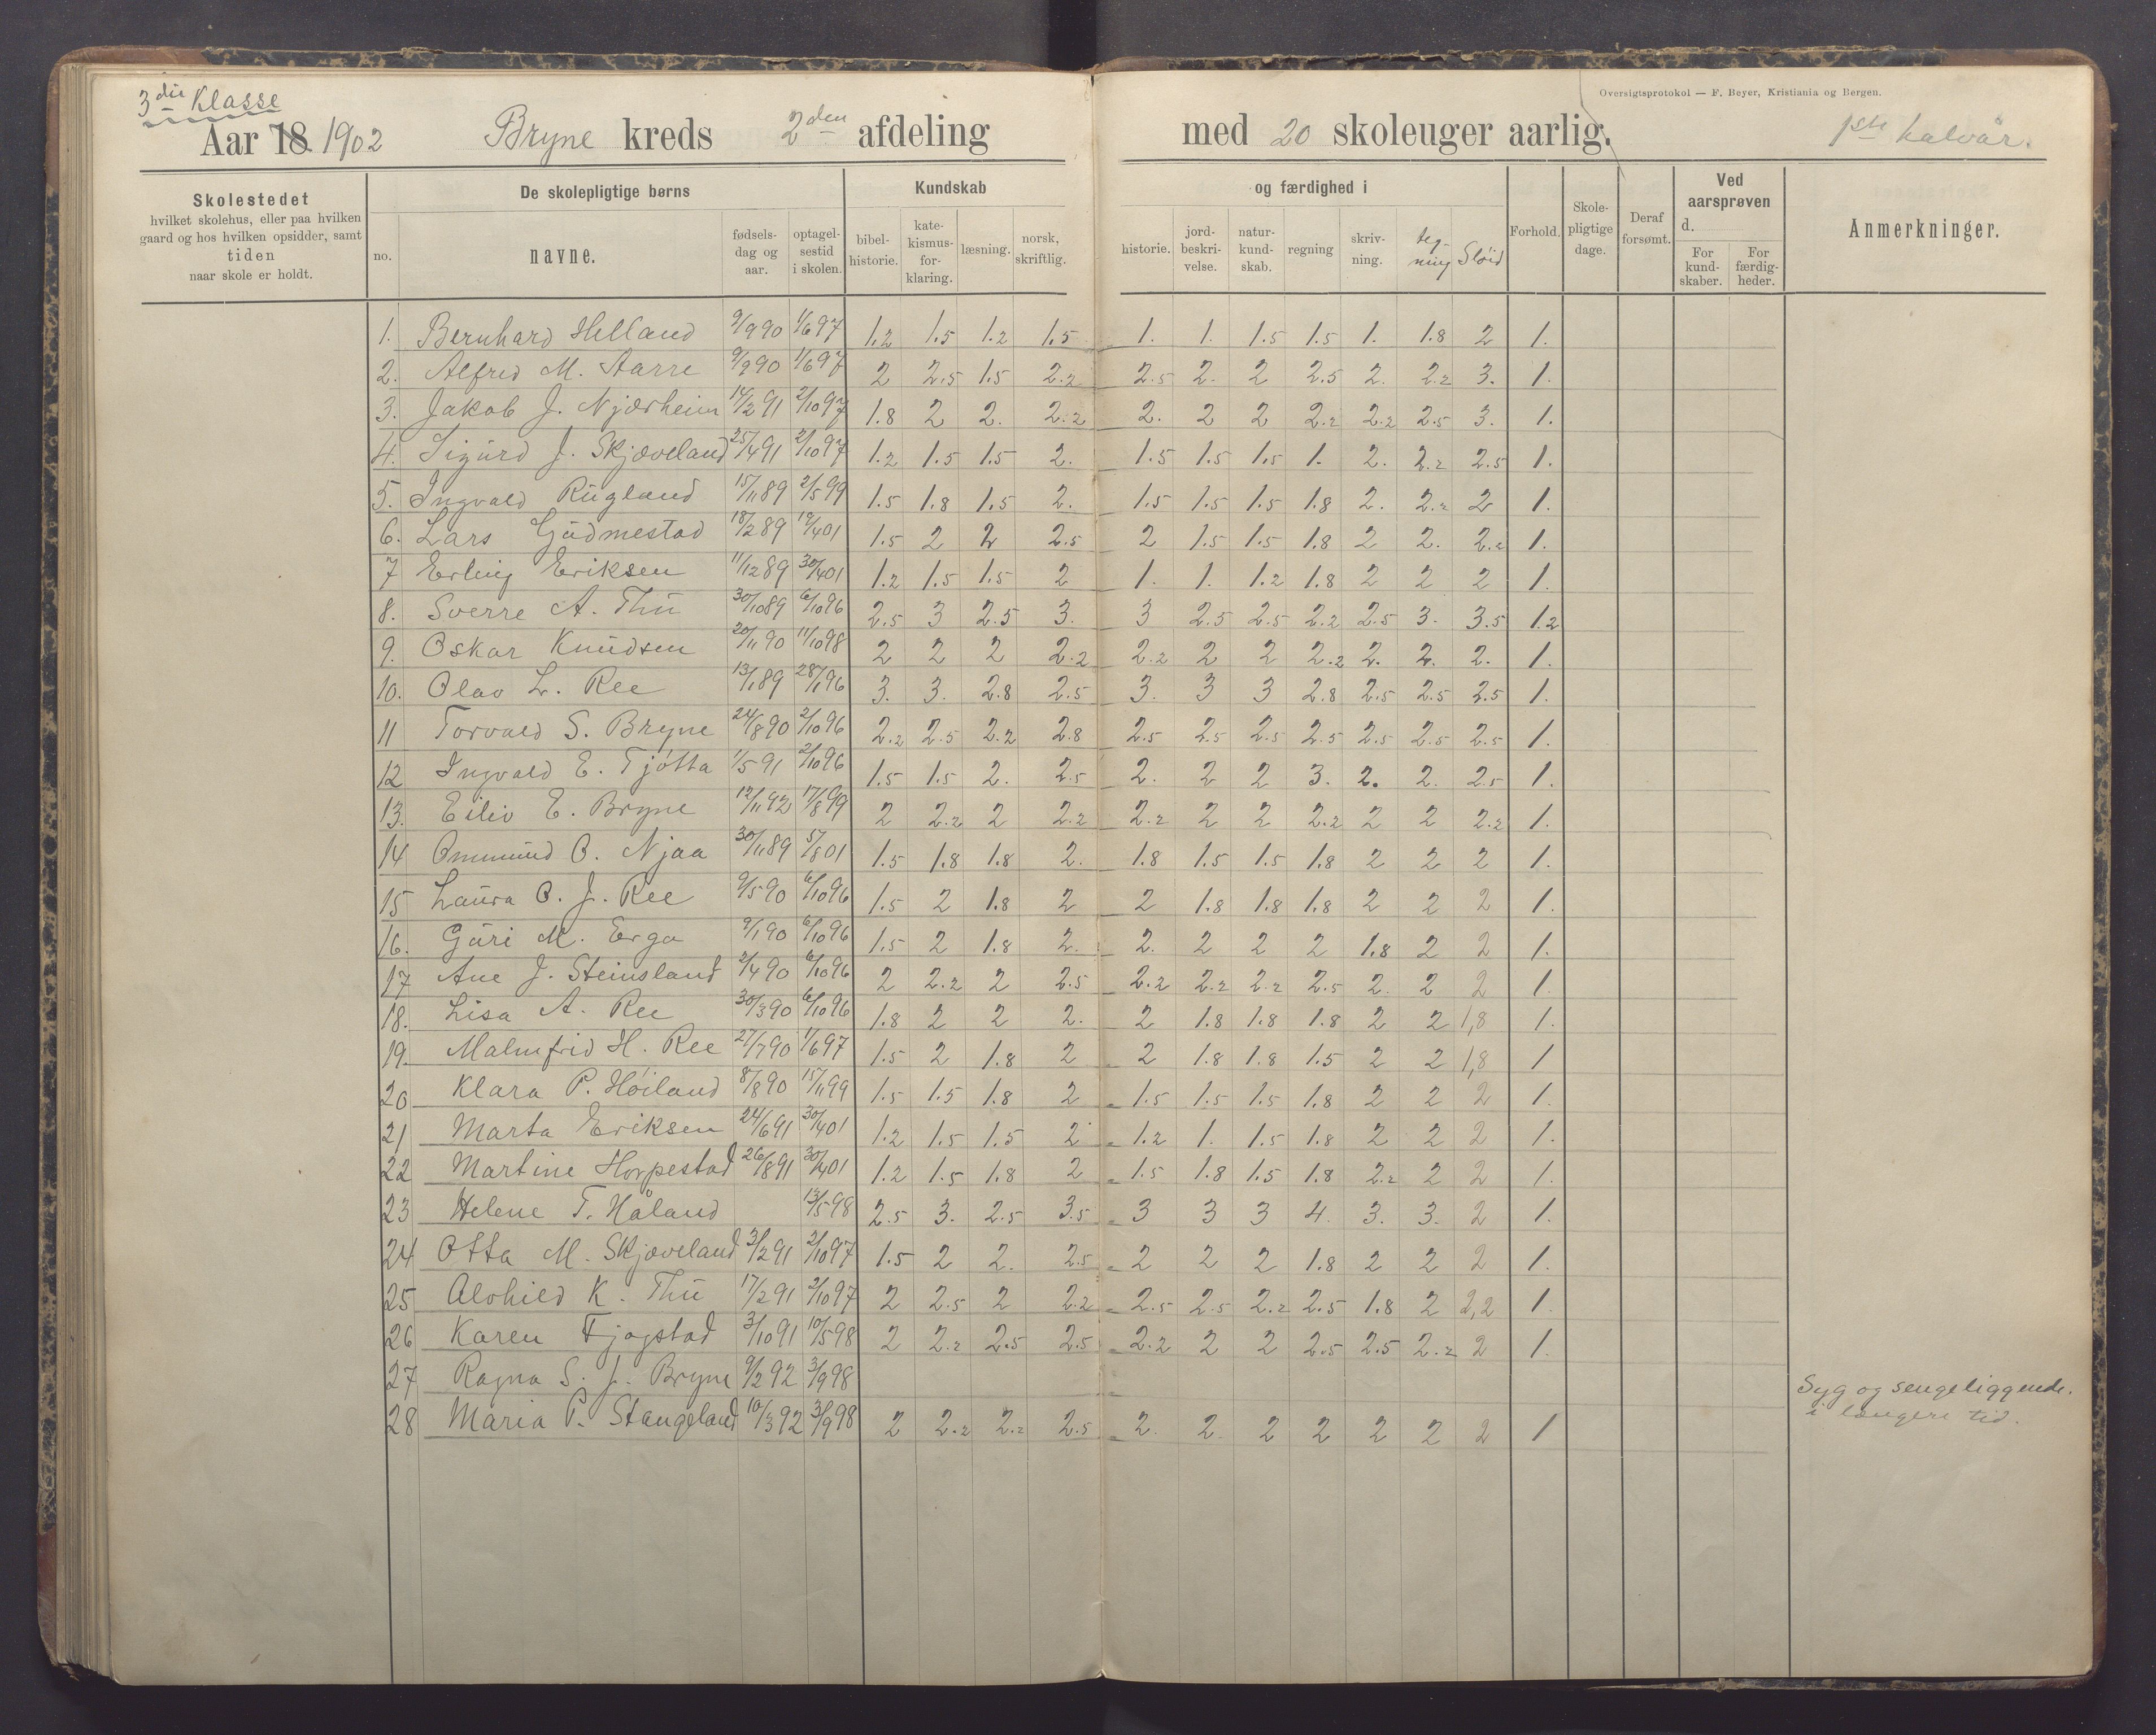 3die Klasse
Oversigtsprotokol — F. Beyer, Kristiania og Bergen.
Aar 18 1902 Bryne kreds 2den afdeling med 20 skoleuger aarlig. 1ste halvår.
Skolestedet hvilket skolehus, eller paa hvilken gaard og hos hvilken opsidder, samt tiden naar skole er holdt.
De skolepligtige børns
no. navne. fødsels-dag og aar. optagel-sestid i skolen.
Kundskab og færdighed i
bibel-historie. kate-kismus-for-klaring. læsning. norsk, skriftlig. historie. jord-beskri-velse. natur-kund-skab. regning skriv-ning. teg-ning Sløid
Forhold. Skole-pligtige dage. Deraf forsømt. Ved aarsprøven d. For kund-skaber. For færdig-heder. Anmerkninger.
1. Bernhard Helland 9/9 90 1/6 97 1.2 1.5 1.2 1.5 1. 1. 1.5 1.5 1. 1.8 2 1.
2. Alfred M. Aarre 9/9 90 1/6 97 2 2.5 1.5 2.2 2.5 2. 2 2.5 2. 2.2 3. 1.
3. Jakob J. Njærheim 14/2 91 2/10 97 1.8 2 2. 2.2 2. 2 2 2.2 2.2 2.5 3. 1.
4. Sigurd J. Skjæveland 25/4 91 2/10 97 1.2 1.5 1.5 2. 1.5 1.5 1.5 1. 2. 2.2 2.5 1.
5. Ingvald Rugland 15/11 89 2/5 99 1.5 1.8 1.5 2. 1.5 1.5 1.5 1.8 2. 2.2 2 1.
6. Lars Gudmestad 18/2 89 19/4 01 1.5 2 2 2.5 2 1.5 1.5 1.8 2 2. 2.2 1.
7 Erling Eriksen 11/12 89 30/4 01 1.2 1.5 1.5 2 1. 1. 1.2 1.8 2 2 2 1.
8. Sverre A. Thu 30/10 89 6/10 96 2.5 3 2.5 3. 3 2.5 2.5 2.2 2.5 3. 3.5 1.2
9. Oskar Knudsen 20/11 90 11/10 98 2 2 2 2.2 2.2 2 2 2.2 2. 2. 2. 1.
10. Olav L. Ree 13/1 89 28/1 96 3. 3. 2.8 2.5 3. 3 3 2.8 2.5 2.5 2.5 1.
11 Torvald S. Bryne 24/8 90 2/10 96 2.2 2.5 2.2 2.8 2.5 2.5 2.5 2.5 2.5 2.5 2.5 1.
12 Ingvald E. Tjøtta 1/5 91 2/10 96 1.5 1.5 2. 2.5 2. 2 2 3. 2. 2. 2.5 1.
13. Eiliv E. Bryne 12/11 92 17/8 99 2 2.2 2 2.2 2.2 2 2 2.2 2 2 2.2 1.
14 Ommund O. Njaa 30/11 89 5/8 01 1.5 1.8 1.8 2. 1.8 1.5 1.5 1.8 2 2 2 1.
15 Laura O. J. Ree 9/5 90 6/10 96 1.5 2 1.8 2 2 1.8 1.8 1.8 2 2 2 1.
16. Guri M. Erga 9/1 90 6/10 96 1.5 2 1.8 2. 2. 2 2 2 1.8 2 2 1.
17 Ane J. Steinsland 2/4 90 6/10 96 2 2.2 2 2.5 2.2 2.2 2.2 2.5 2. 2 2 1.
18. Lisa A. Ree 30/3 90 6/10 96 1.8 2 2 2. 2 1.8 1.8 1.8 2 2 1,8 1.
19. Malmfrid H. Ree 27/7 90 1/6 97 1.5 2 1.8 2 2 1.8 1.8 1.5 2 2 1,8 1
20 Klara P. Høiland 8/8 90 15/11 99 1.5 1.5 1.8 2 1.5 1.5 1.5 1.8 2 2 2 1.
21 Marta Eriksen 24/6 91 30/4 01 1.2 1.5 1.5 2 1.2 1. 1.5 1.8 2 2 2 1.
22 Martine Horpestad 26/8 91 30/4 01 1.2 1.5 1.8 2 1.5 1.8 1.5 1.8 2.2 2 2 1.
23 Helene T. Håland 13/5 98 2.5 3. 2.5 3.5 3 3 3 4. 3. 3. 2 1.
24 Otta M. Skjæveland 3/2 91 2/10 97 1.5 2 2. 2.5 2 2 2 1.8 2 2 2 1.
25 Alvhild K. Thu 17/2 91 2/10 97 2 2.5 2 2.2 2.5 2.5 2.2 2.5 1.8 2 2,2 1.
26 Karen Fjogstad 3/10 91 10/5 98 2 2.2 2.5 2.5 2.2 2 2 2.5 2.5 2.2 2 1.
27 Ragna S. J. Bryne 9/2 92 3/9 98 Syg og sengeliggende.
i længere tid.
28 Maria P. Stangeland 10/3 92 3/9 98 2 2.2 2.2 2.5 2. 2. 2 2 2 2 2 1